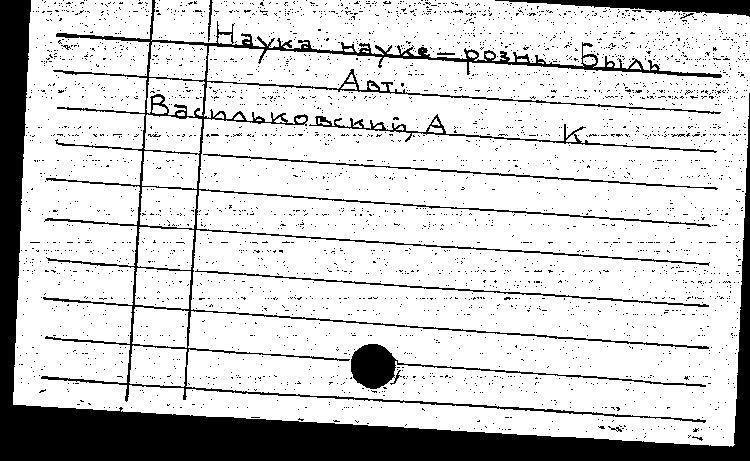 Наука науке – рознь. Быль
Авт.:
Васильковский, А. К.